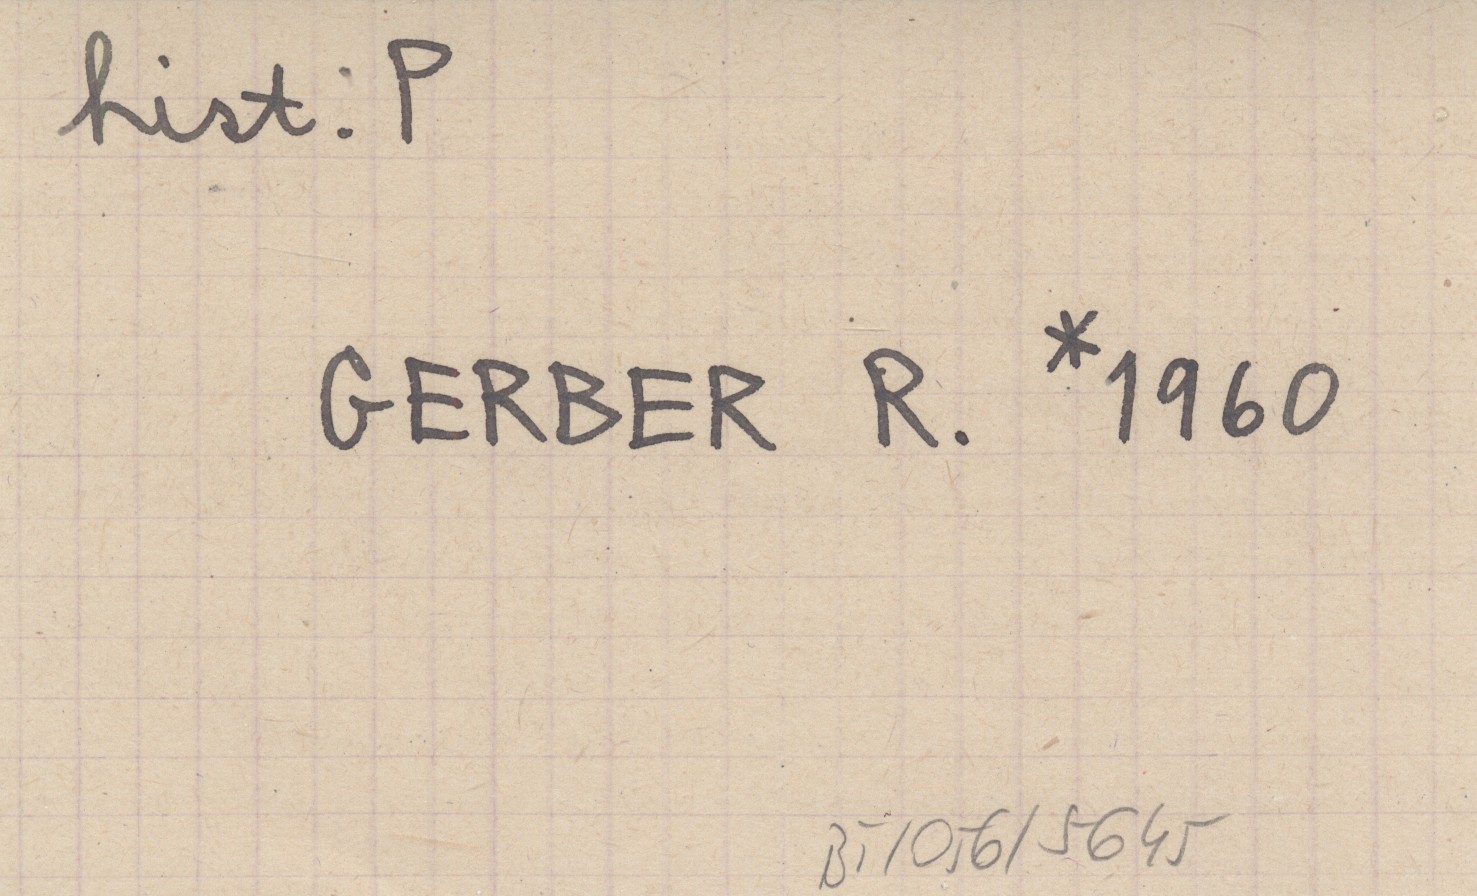 hist: P
GERBER R. *1960
BI/056/5645